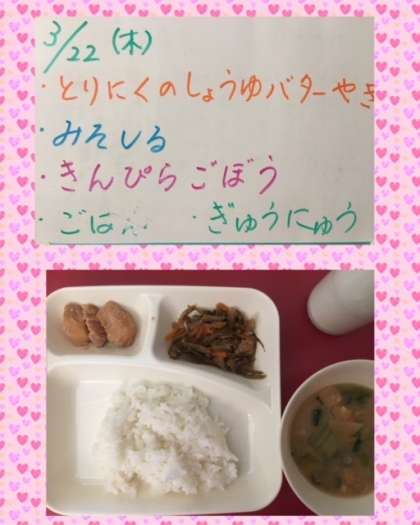 3/22 (木)
・とりにくのしょうゆバターやき
・みそしる
・きんぴらごぼう
・ごはん ・ぎゅうにゅう